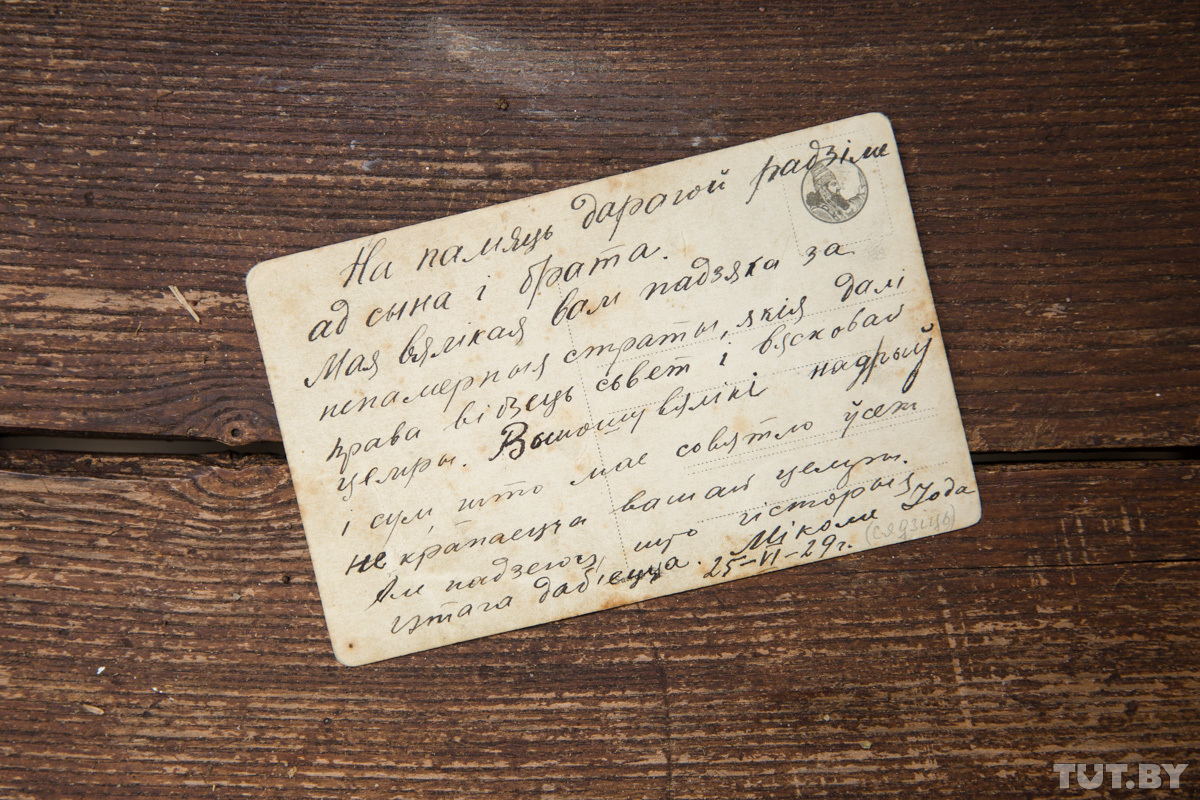 На памяць дарагой радзіме
ад сына і брата.
Мая вялікая вам падзяка за
непамерныя страты, якія далі
права відзець сьвет і вясковай
цемры. Выношу вялікі надрыў
і сум, што мае совятло ўсеж
не кранаецца вашай цемры.
Ям надзеюсь, што гісторыя
гэтага даб'ецца. Міколе Года
25-VI-29г. (сядзіць)
TUT.BY